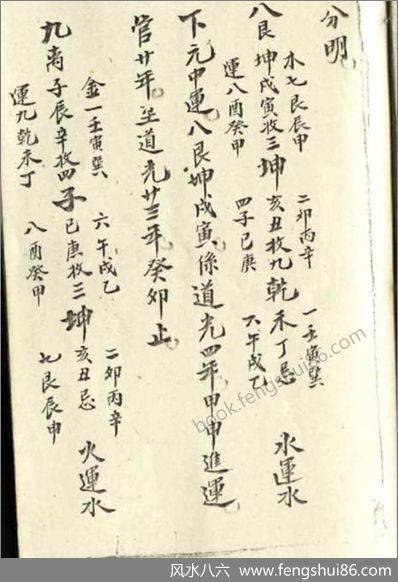 分明
木七艮辰申 二卯丙辛 一壬寅巽
八艮坤戌寅收三坤亥丑收九乾未丁忌 水運水
運八酉癸甲 四子巳庚 六午戌乙
下元中運八艮坤戌寅係道光四年甲申進運
管廿年至道光廿三年癸卯止
金一壬寅巽 六午戌乙 二卯丙辛
九離子辰辛收四子巳庚收三坤亥丑忌 火運水
運九乾未丁 八酉癸甲 七艮辰申
book.fengshui86.com
风水八六 - www.fengshui86.com